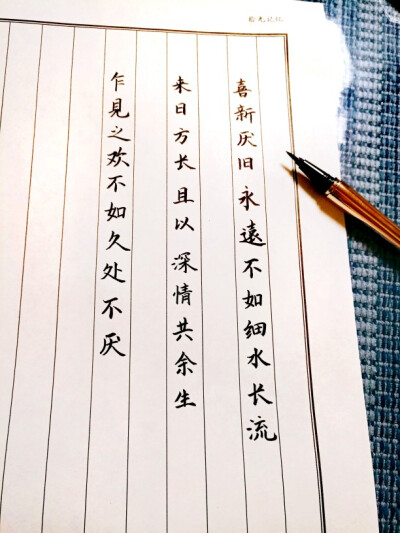 喜新厌旧永遠不如细水长流
来日方长且以深情共余生
乍見之欢不如久处不厌